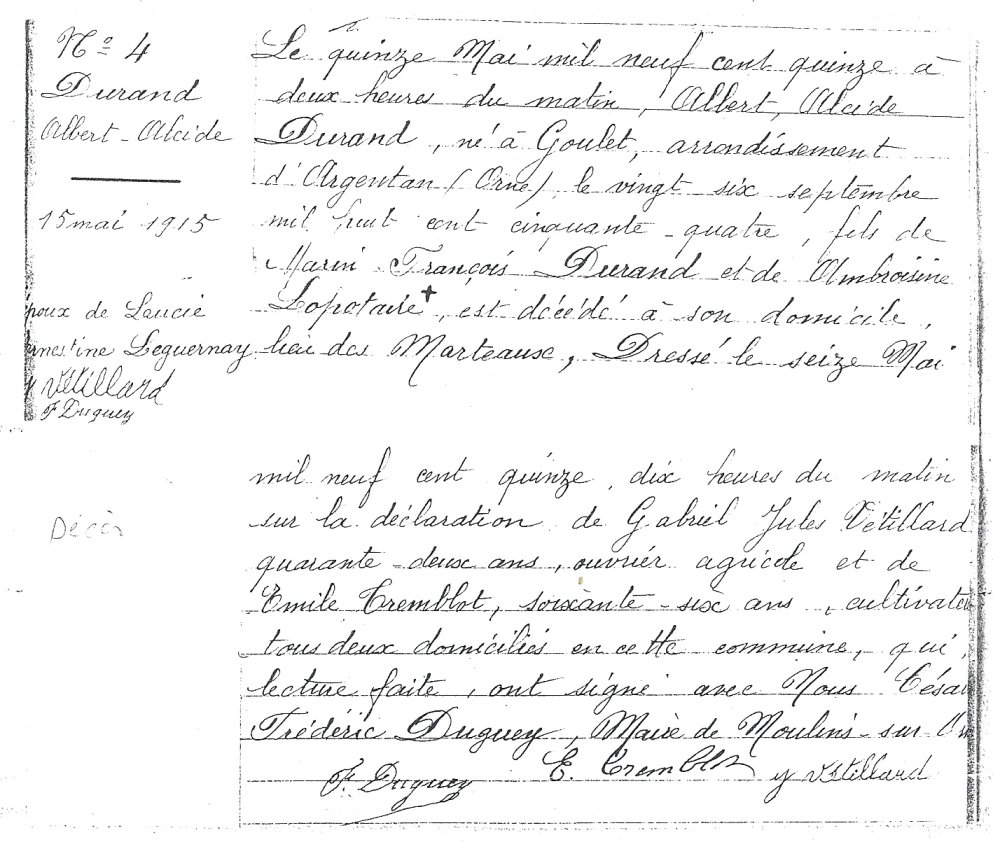 N° 4
Durand
Albert - Alcide
15 mai 1915
poux de Laucie
rnestine Leguernay
Vétillard
F Duguey
Le quinze Mai mil neuf cent quinze à
deux heures du matin, Albert, Alcide
Durand, né à Goulet, arrondissement
d'Argentan (Orne), le vingt six septembre
mil huit cent cinquante - quatre, fils de
Marin François Durand et de Ambroisine
Lopotaire +, est décédé à son domicile,
lieu des Marteaux, Dressé le seize Mai
mil neuf cent quinze, dix heures du matin
sur la déclaration de Gabriel Jules Vétillard
quarante - deux ans, ouvrier agricole et de
Emile Tremblot, soixante - six ans, cultivateu
tous deux domiciliés en cette commune, qui,
lecture faite, ont signé avec Nous César
Frédéric Duguey, Maire de Moulins - sur Or
F. Duguey E. Tremblot Vétillard
Décès